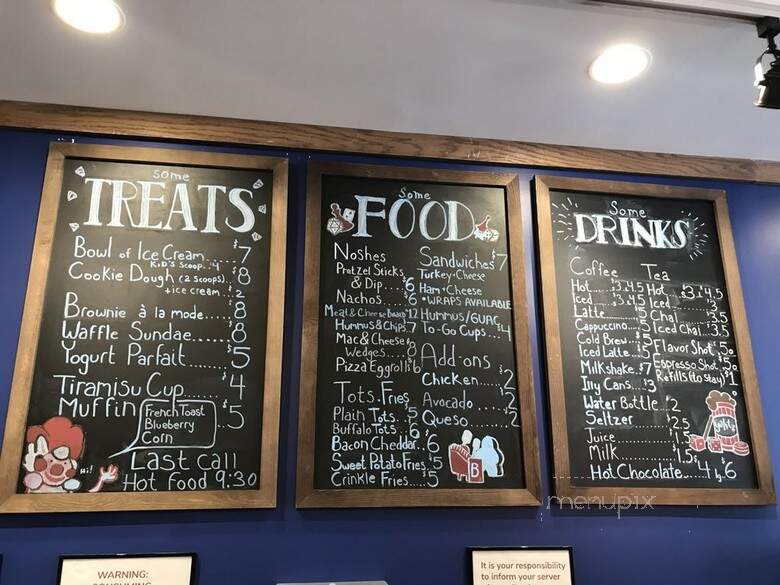 some
TREATS
Bowl of Ice Cream.....$7
Kid's scoop..4
Cookie Dough (2 scoops) $8
+ice cream...2
Brownie à la mode.....8
Waffle Sundae.....8
Yogurt Parfait.....5
Tiramisu Cup....4
Muffin $5
French Toast
Blueberry
Corn
Hi!
Last call
Hot food 9:30
Some
FOOD
Noshes
Pretzel Sticks
& Dip...$6
Nachos....6
Meat & Cheese Board $12
Hummus & Chips.7
Mac & Cheese
Wedges...8
Pizza Eggroll $6
Tots. Fries
Plain Tots..5
Buffalo Tots..6
Bacon Cheddar..6
Sweet Potato Fries.5
Crinkle Fries....5
Sandwiches $7
Turkey+Cheese
Ham+Cheese
*WRAPS AVAILABLE
Hummus/Guac
To-Go Cups...$4
Add-ons
Chicken.....$2
Avocado....2
Queso....2
B
Some
DRINKS
Coffee
Hot....$3.4.5
Iced...$3.4.5
Latte
Cappuccino..5
Cold Brew..5
Iced Latte..5
Milkshake.$7
Illy Cans..$3
Water Bottle.$2
Seltzer....$2.5
Juice....$1.5
Milk....$1.5
Hot Chocolate..$4 lg $6
Tea
Hot..$3.4.5
Iced
Chai
Iced Chai.
Flavor Shot.50
Espresso Shot.50
Refills (to stay) $1
menupix
WARNING:
CONSUMING
It is your responsibility
to inform your server